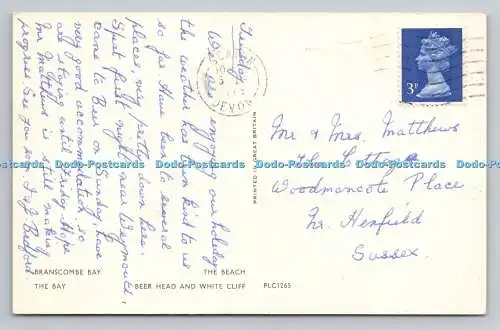 Tuesday
We are enjoying our holiday
the weather has been kind to us
so far. Have been to several
places, very pretty down here.
Spent first night near Weymouth,
came to Beer on Sunday, have
very good accommodation, so
are staying until Friday. Hope
Mr Matthews is still making
progress. See you soon. J & J Bedford.
DEVON
3P
Mr & Mrs. Matthews
The Cottage
Woodmancote Place
Nr. Henfield
Sussex.
PRINTED IN GREAT BRITAIN
BRANSCOMBE BAY THE BEACH
THE BAY BEER HEAD AND WHITE CLIFF PLC1265
Dodo-Postcards Dodo-Postcards Dodo-Postcards Dodo-Postcards Dodo-Postcards Dodo-Postcards